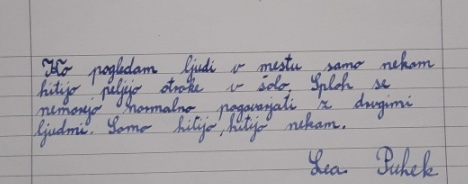 Ko pogledam ljudi v mestu samo nekam
hitijo peljejo otroke v šolo. Sploh se
nemorejo normalno pogovarjati z drugimi
ljudmi. Samo hitijo, hitijo nekam.
Lea Puhek